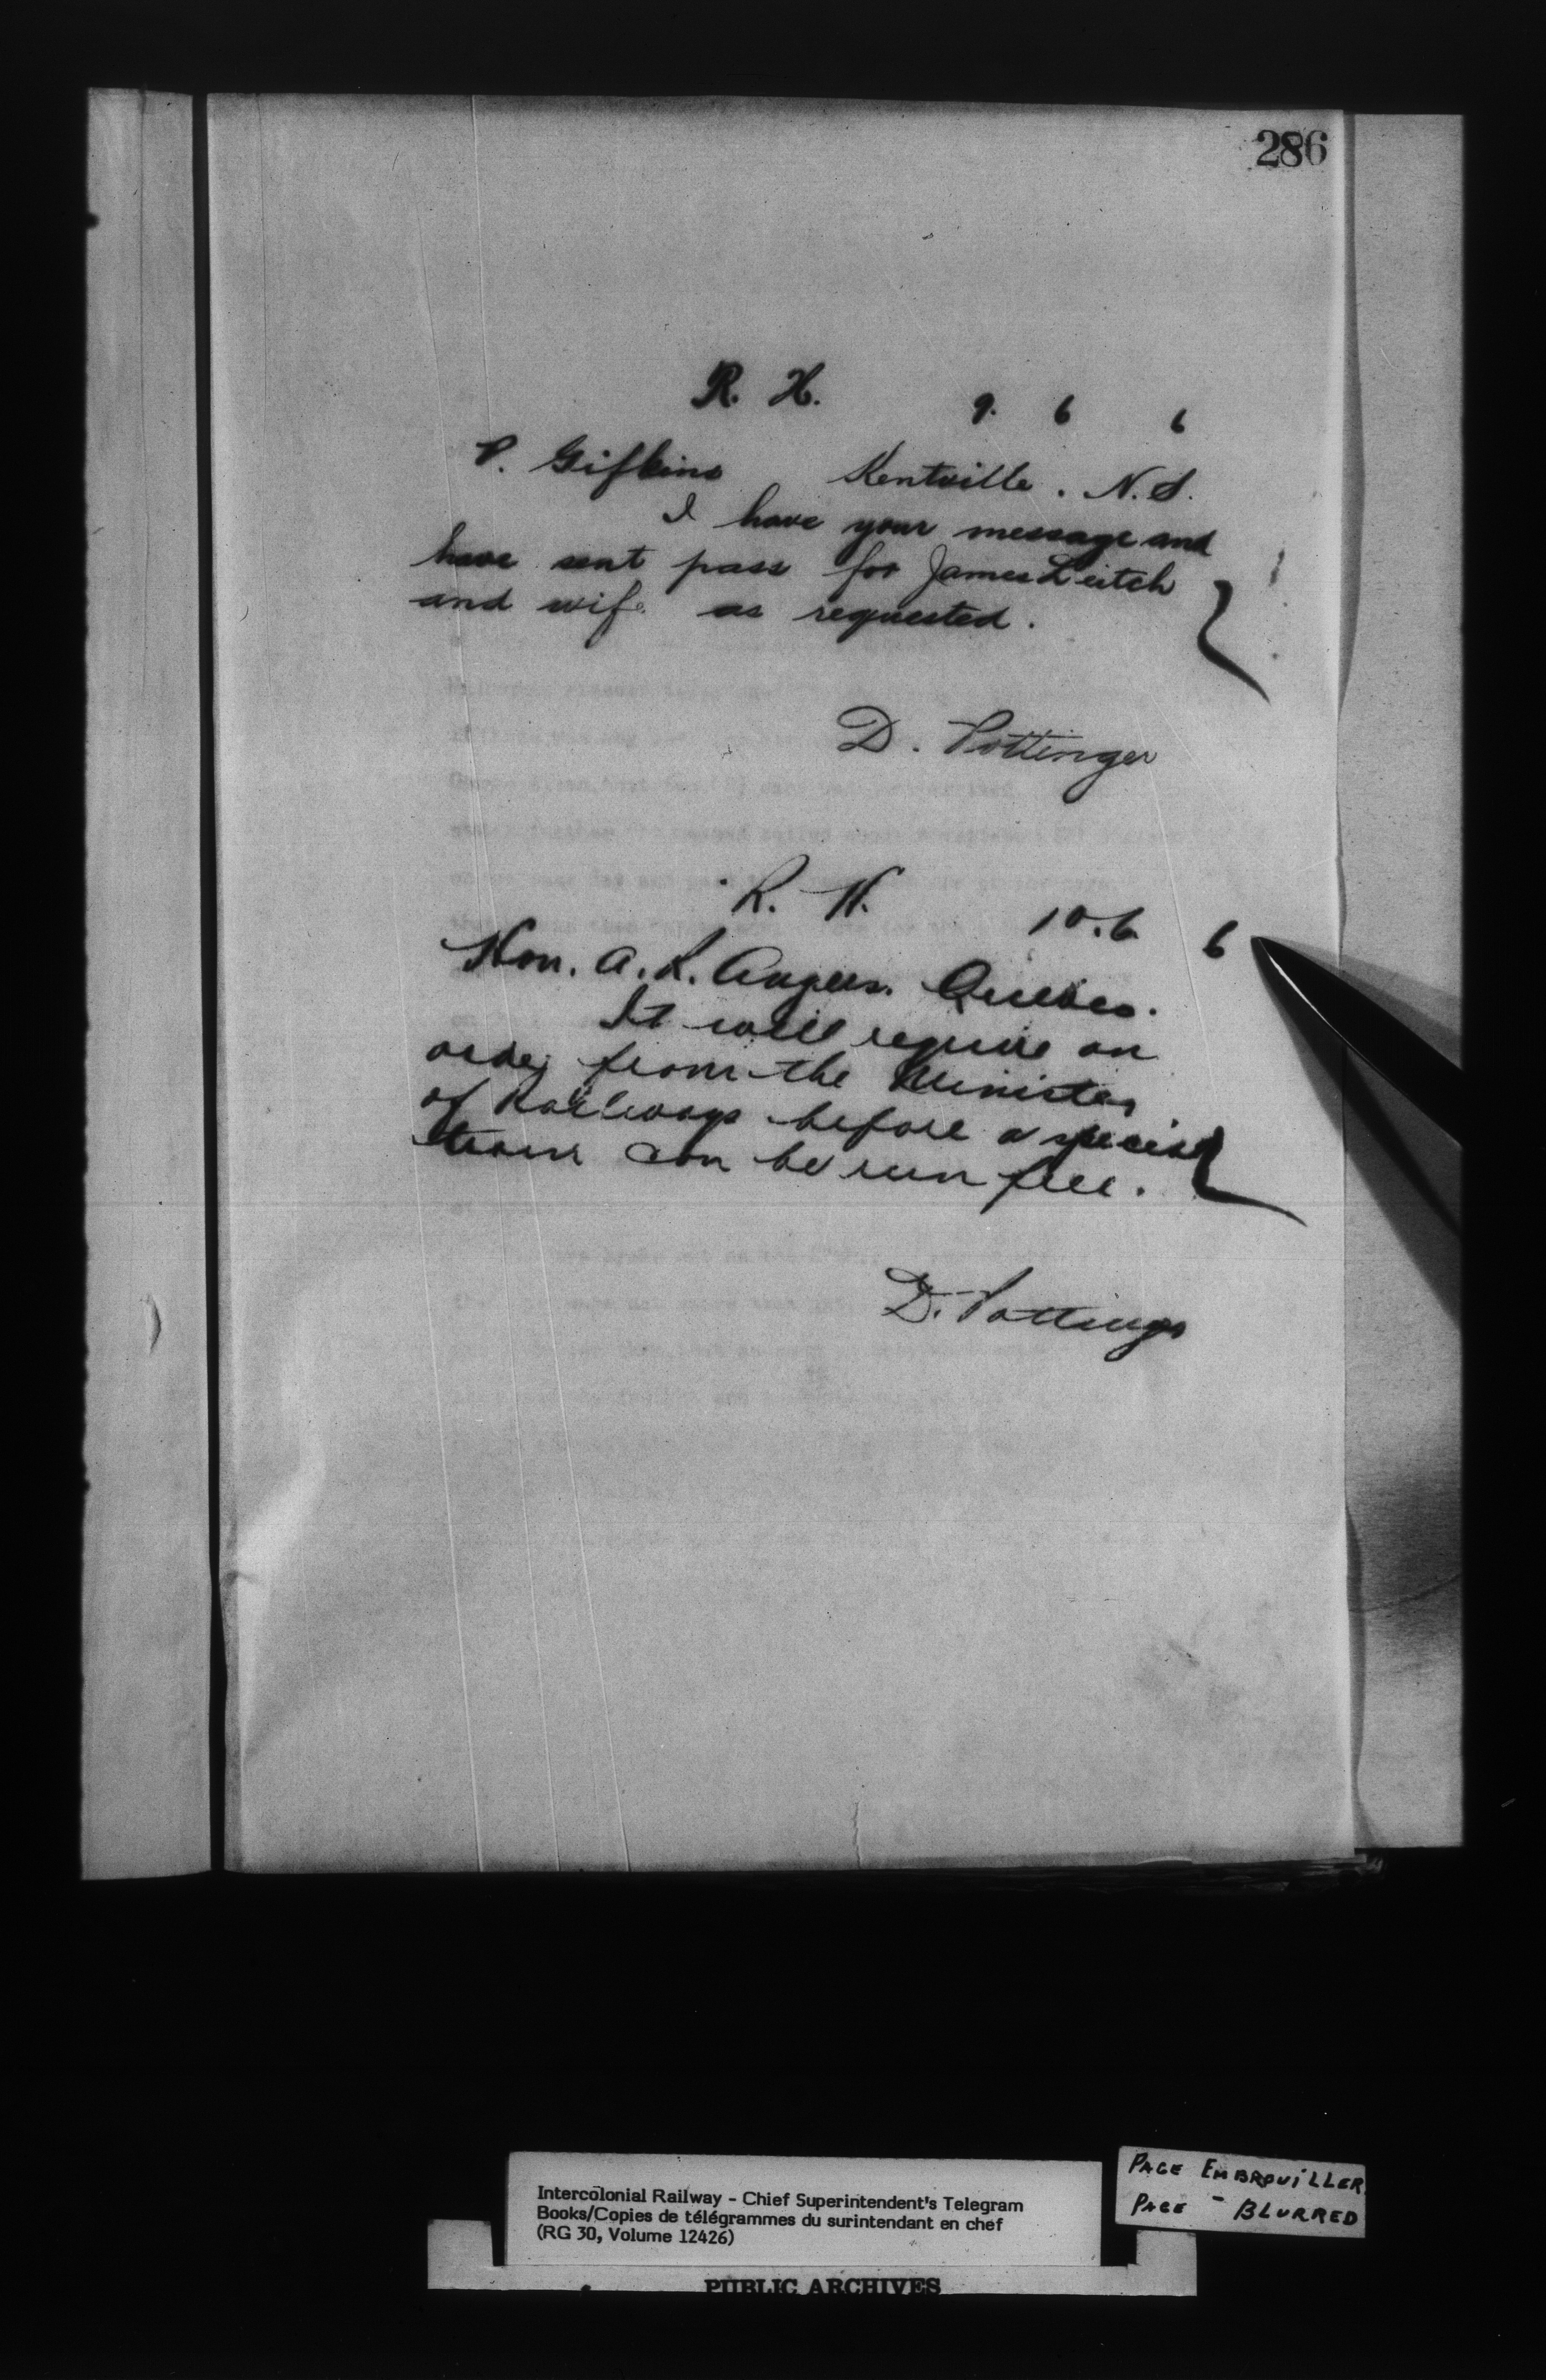 286
R. H. 9. 6 6
P. Gifkins Kentville. N.S.
I have your message and
have sent pass for James Leitch
and wife as requested.
D. Pottinger
R. H. 10.6 6
Hon. A. R. Angers. Quebec.
It will require an
order from the Minister
of Railways before a special
train can be run free.
D. Pottinger
Intercolonial Railway - Chief Superintendent's Telegram
Books/Copies de télégrammes du surintendant en chef
(RG 30, Volume 12426)
PAGE EMBROUILLER
PAGE - BLURRED
PUBLIC ARCHIVES